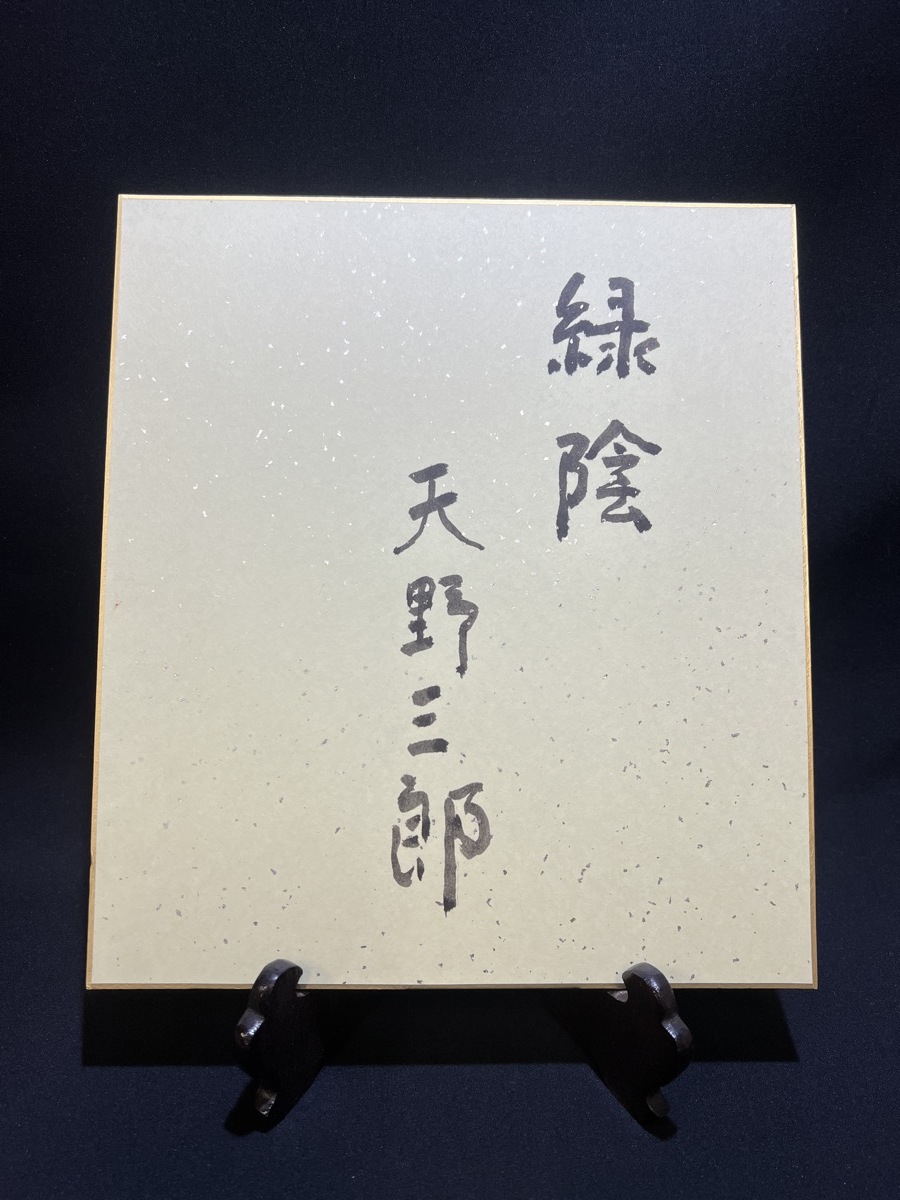 緑陰
天野三郎